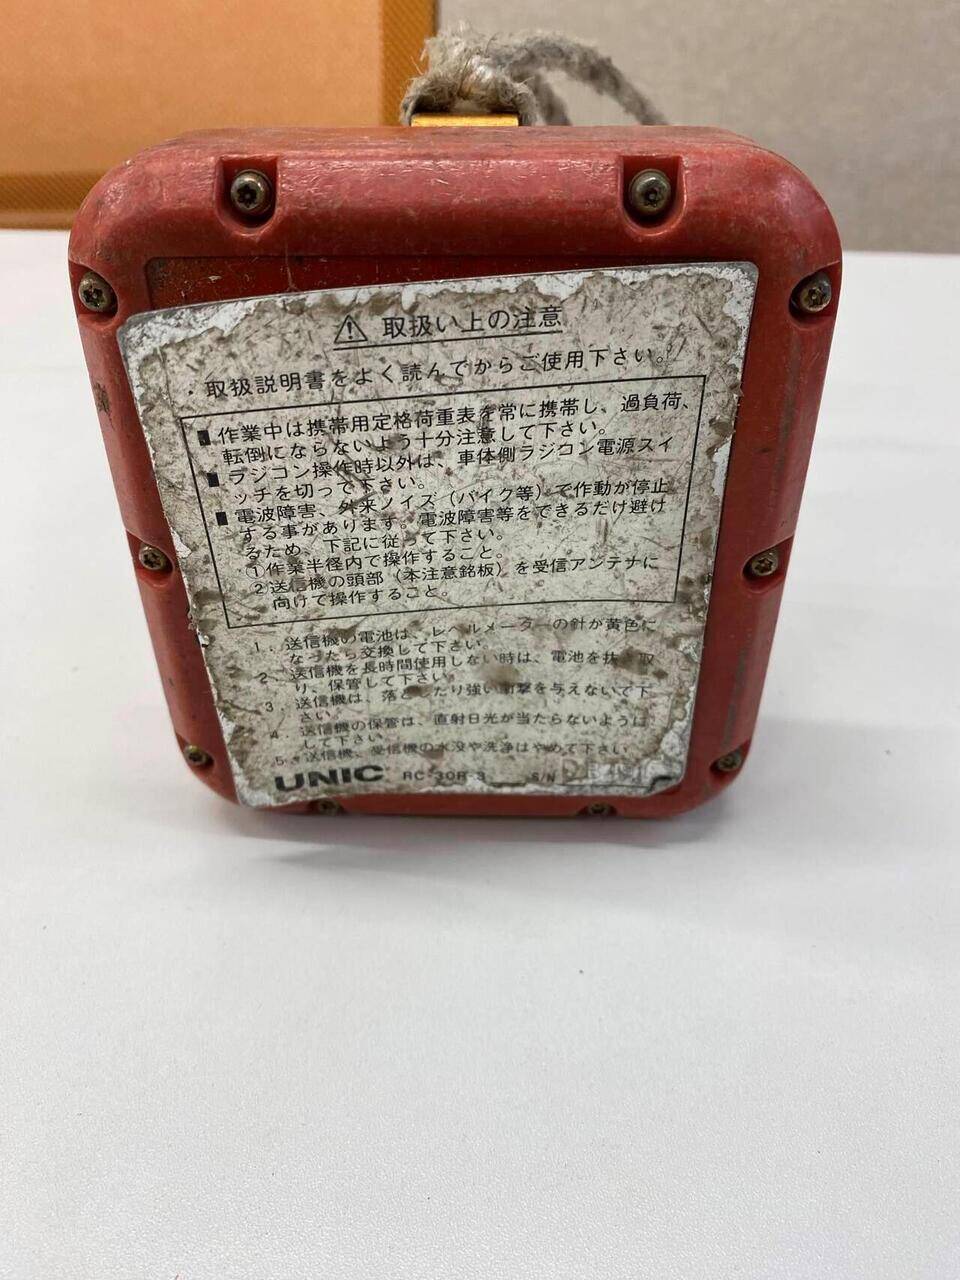 取扱い上の注意
・取扱説明書をよく読んでからご使用下さい。
■作業中は携帯用定格荷重表を常に携帯し、過負荷、
転倒にならないよう十分注意して下さい。
■ラジコン操作時以外は、車体側ラジコン電源スイ
ッチを切って下さい。
■電波障害、外来ノイズ（バイク等）で作動が停止
する事があります。電波障害等をできるだけ避け
るため、下記に従って下さい。
①作業半径内で操作すること。
②送信機の頭部（本注意銘板）を受信アンテナに
向けて操作すること。
1．送信機の電池は、レベルメーターの針が黄色に
なったら交換して下さい。
2．送信機を長時間使用しない時は、電池を抜き取
り、保管して下さい。
3．送信機は、落としたり強い衝撃を与えないで下
さい。
4．送信機の保管は、直射日光が当たらないように
して下さい。
5．送信機、受信機の水没や洗浄はやめて下さい
UNIC RC-30R-3 S/N